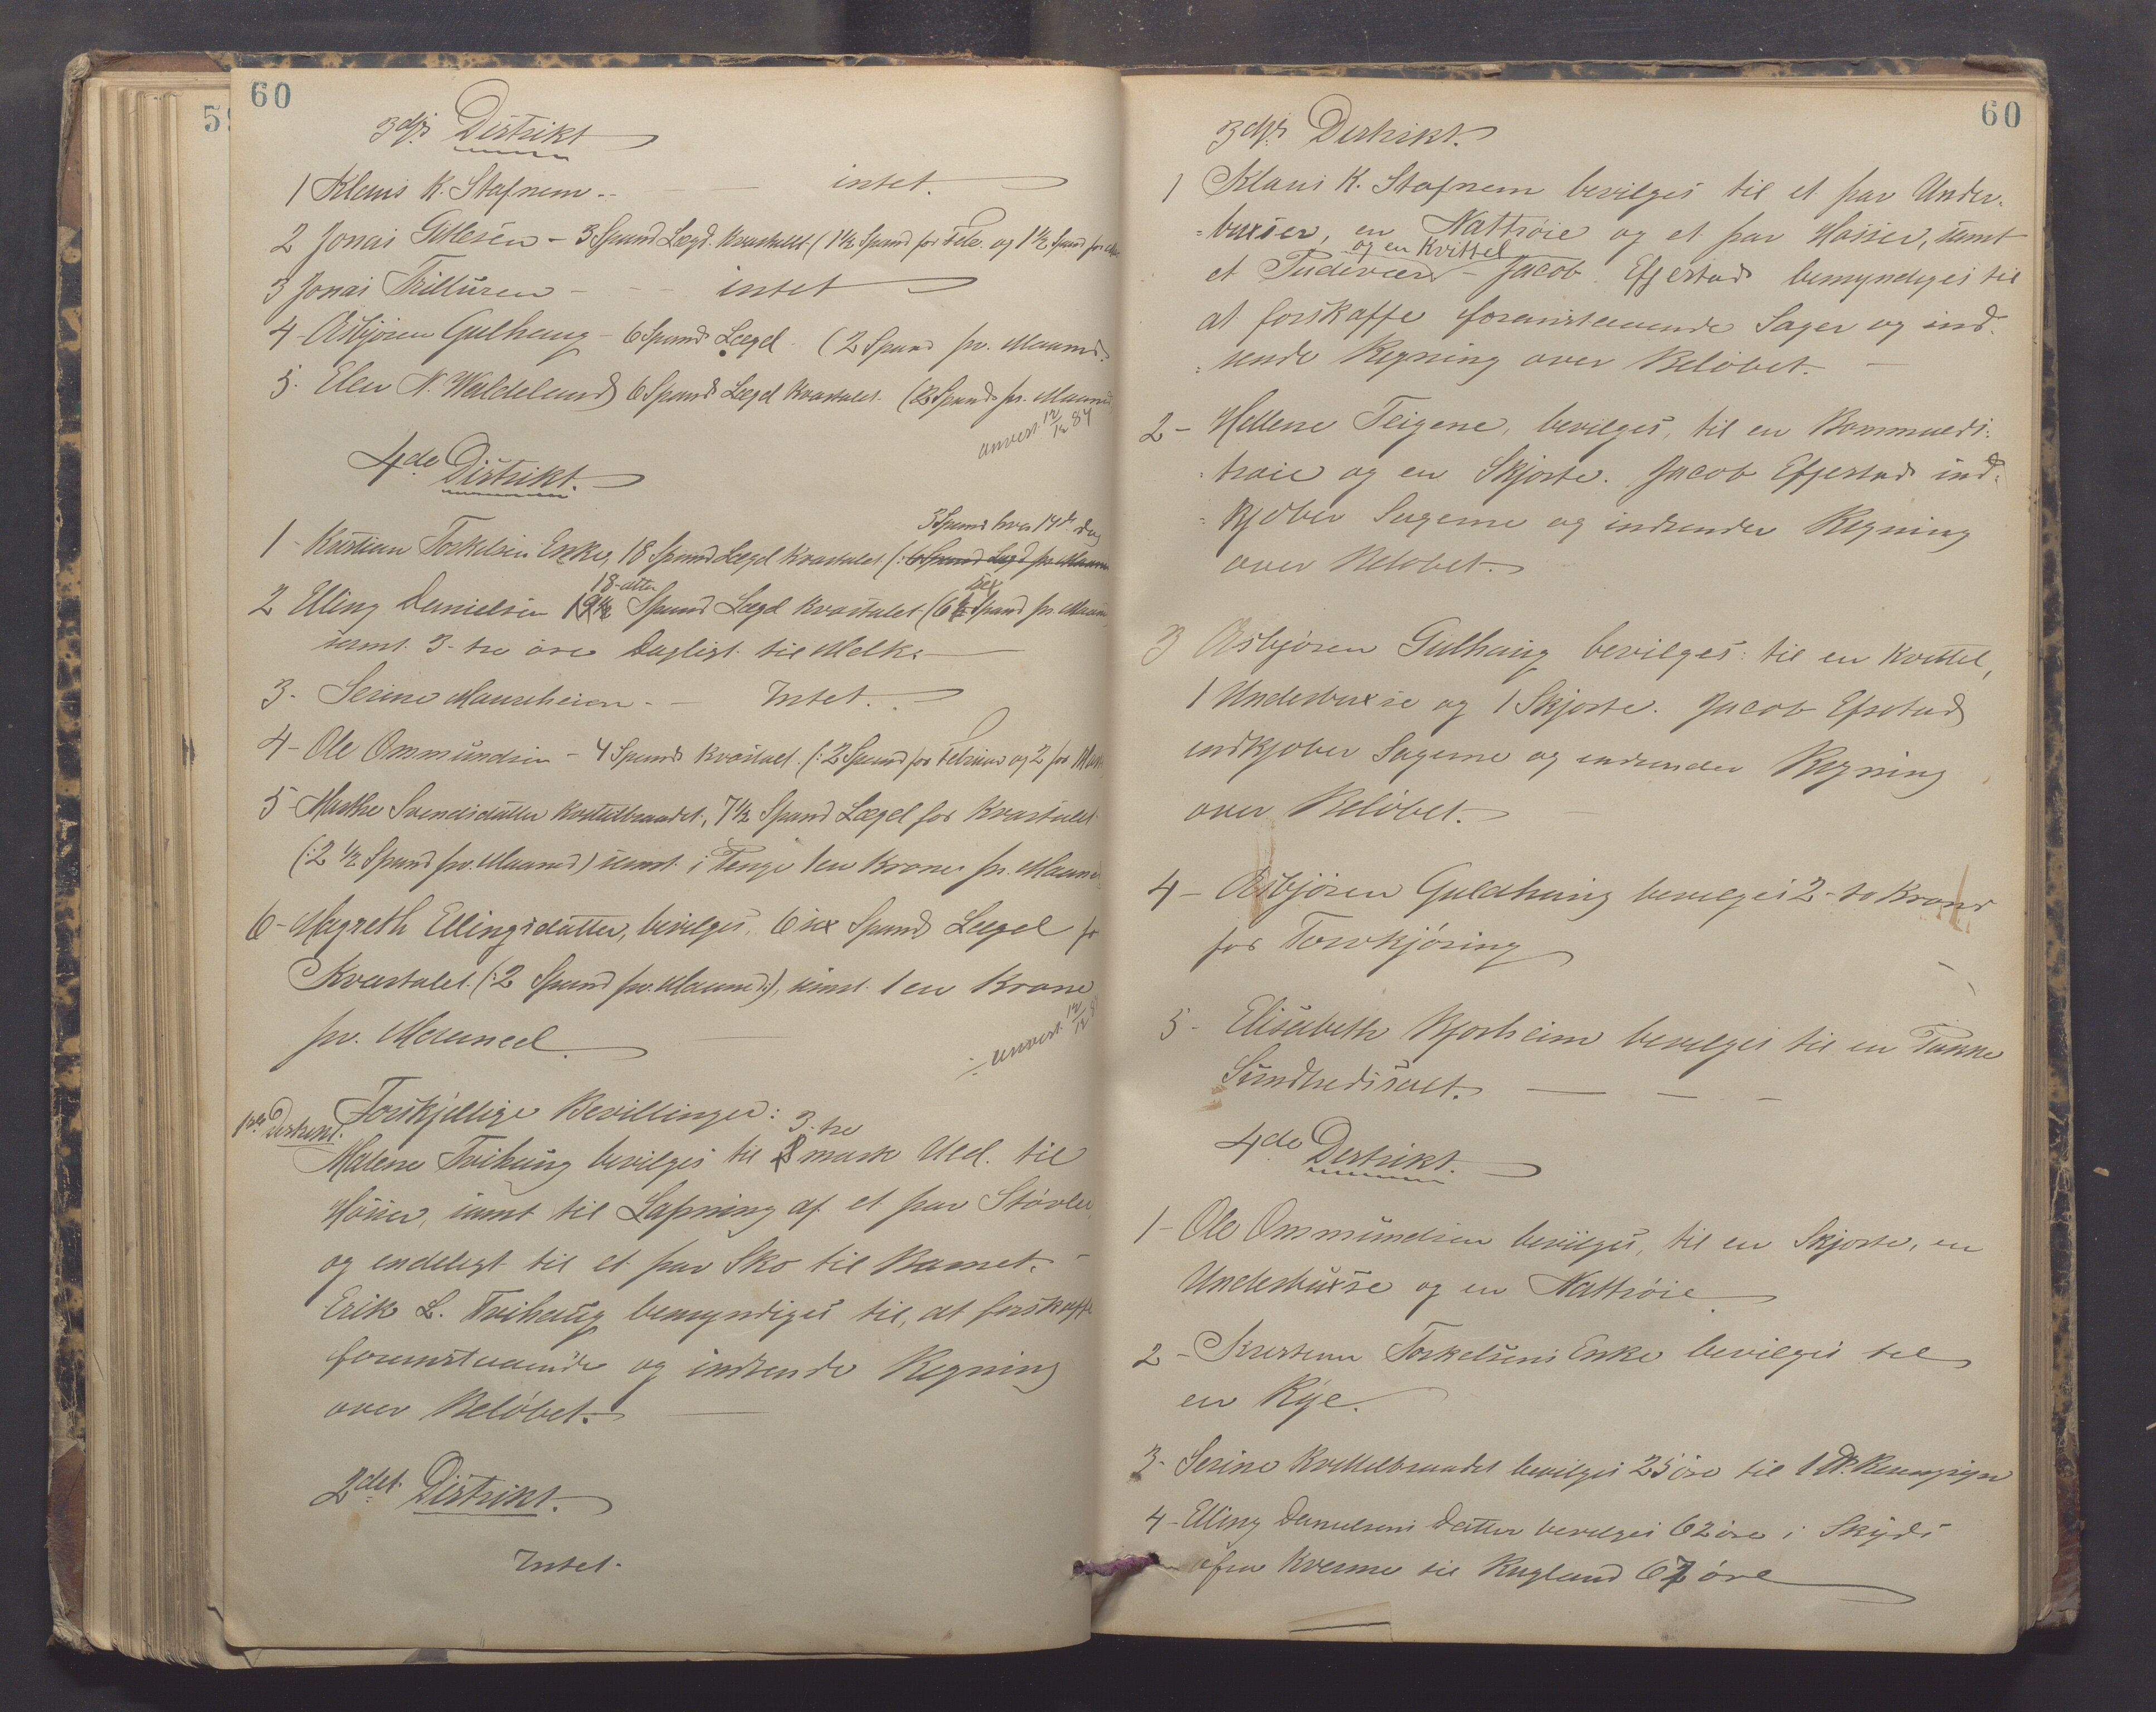 60
3die Distrikt
1 Klaus K. Stafnem -- intet.
2 Jonas Gitlesen - 3 Spand Lægd. Kvartalet (1 1/2 Spand for Febr. og 1 1/2 Spand for
3 Jonas Trilluren - - - intet
4 - Asbjøren Gulhaug - 6 Spand Lægd. (2 Spand pr. Maaned.
5. Elen N. Waldeland 6 Spand Lægd Kvartalet. (2 Spand pr. Maaned
anvist 12/12 84
4de Distrikt.
3 Spand hver 14de Dag
1 - Kristian Torkelsens Enke, 18 Spand Lægd Kvartalet (: 6 Spand Lægd pr Maaned
18-atten sex
2 Elling Danielsen 19 1/2 Spand Lægd Kvartalet (6 1/2 Spand pr Maaned
samt 3-tre øre Dagligt til Melk.
3. Serine Mausheien - - Intet.
4 - Ole Ommundsen - 4 Spand Kvartalet. (: 2 Spand for Februar og 2 for Marts
5 - Marthe Svendsdatter Kvittelbraadet, 7 1/2 Spand Lægd for Kvartalet
(: 2 1/2 Spand pr. Maaned) samt i Penge 1 en Krone pr. Maaned
6 - Magreth Ellingsdatter, bevilges, 6 sex Spand Lægd for
Kvartalet. (: 2 Spand pr. Maaned.), samt 1 en Krone
pr. Maaned.
anvist 12/12
Forskjellige Bevillinger:
1ste Distrikt. 3-tre
Malene Tvihaug bevilges til mark Uld. til
Hoser, samt til Lapning af et par Støvler
og endeligt til et par Sko til Barnet. -
Erik L. Tvihaug bemyndiges til, at forskaffe
foranstaaende og indsende Regning
over Beløbet.
2det Distrikt.
Intet.
60
3die Distrikt.
1 Klaus K. Stafnem bevilges til et par Under-
=buxser, en Nattrøie og et par Hosser, samt
og en Kvittel
et Pudevær - Jacob Efjestad bemyndiges til
at forskaffe foranstaaende Sager og ind-
=sende Regning over Beløbet. -
2 - Hellene Teigene, bevilges, til en Bommulds-
=trøie og en Skjorte. Jacob Efjestad ind-
=kjøber Sagerne og indsender Regning
over Beløbet.
3 Asbjøren Gulhaug bevilges: til en Kvittel,
1 Underbuxse og 1 Skjorte. Jacob Efestad
indkjøber Sagerne og indsender Regning
over Beløbet.
4 - Asbjøren Guldhaug bevilges 2-to Kroner
for Torvkjøring
5 - Elisabeth Bjorheim bevilges til en Panne
Sundhedssalt.
4de Distrikt.
1 - Ole Ommundsen bevilges, til en Skjorte, en
Underbuxse og en Nattrøie.
2 - Kristian Torkelsens Enke bevilges til
en Rye.
3 - Serine Kvittelbraadet bevilges 25 øre til 1
4 - Elling Danielsens Datter bevilges 62 øre i Skyds
fra Kverme til Rugland 62 øre